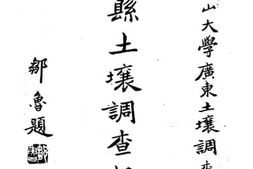 山大學廣東土壤調查
縣土壤調查
鄒魯題